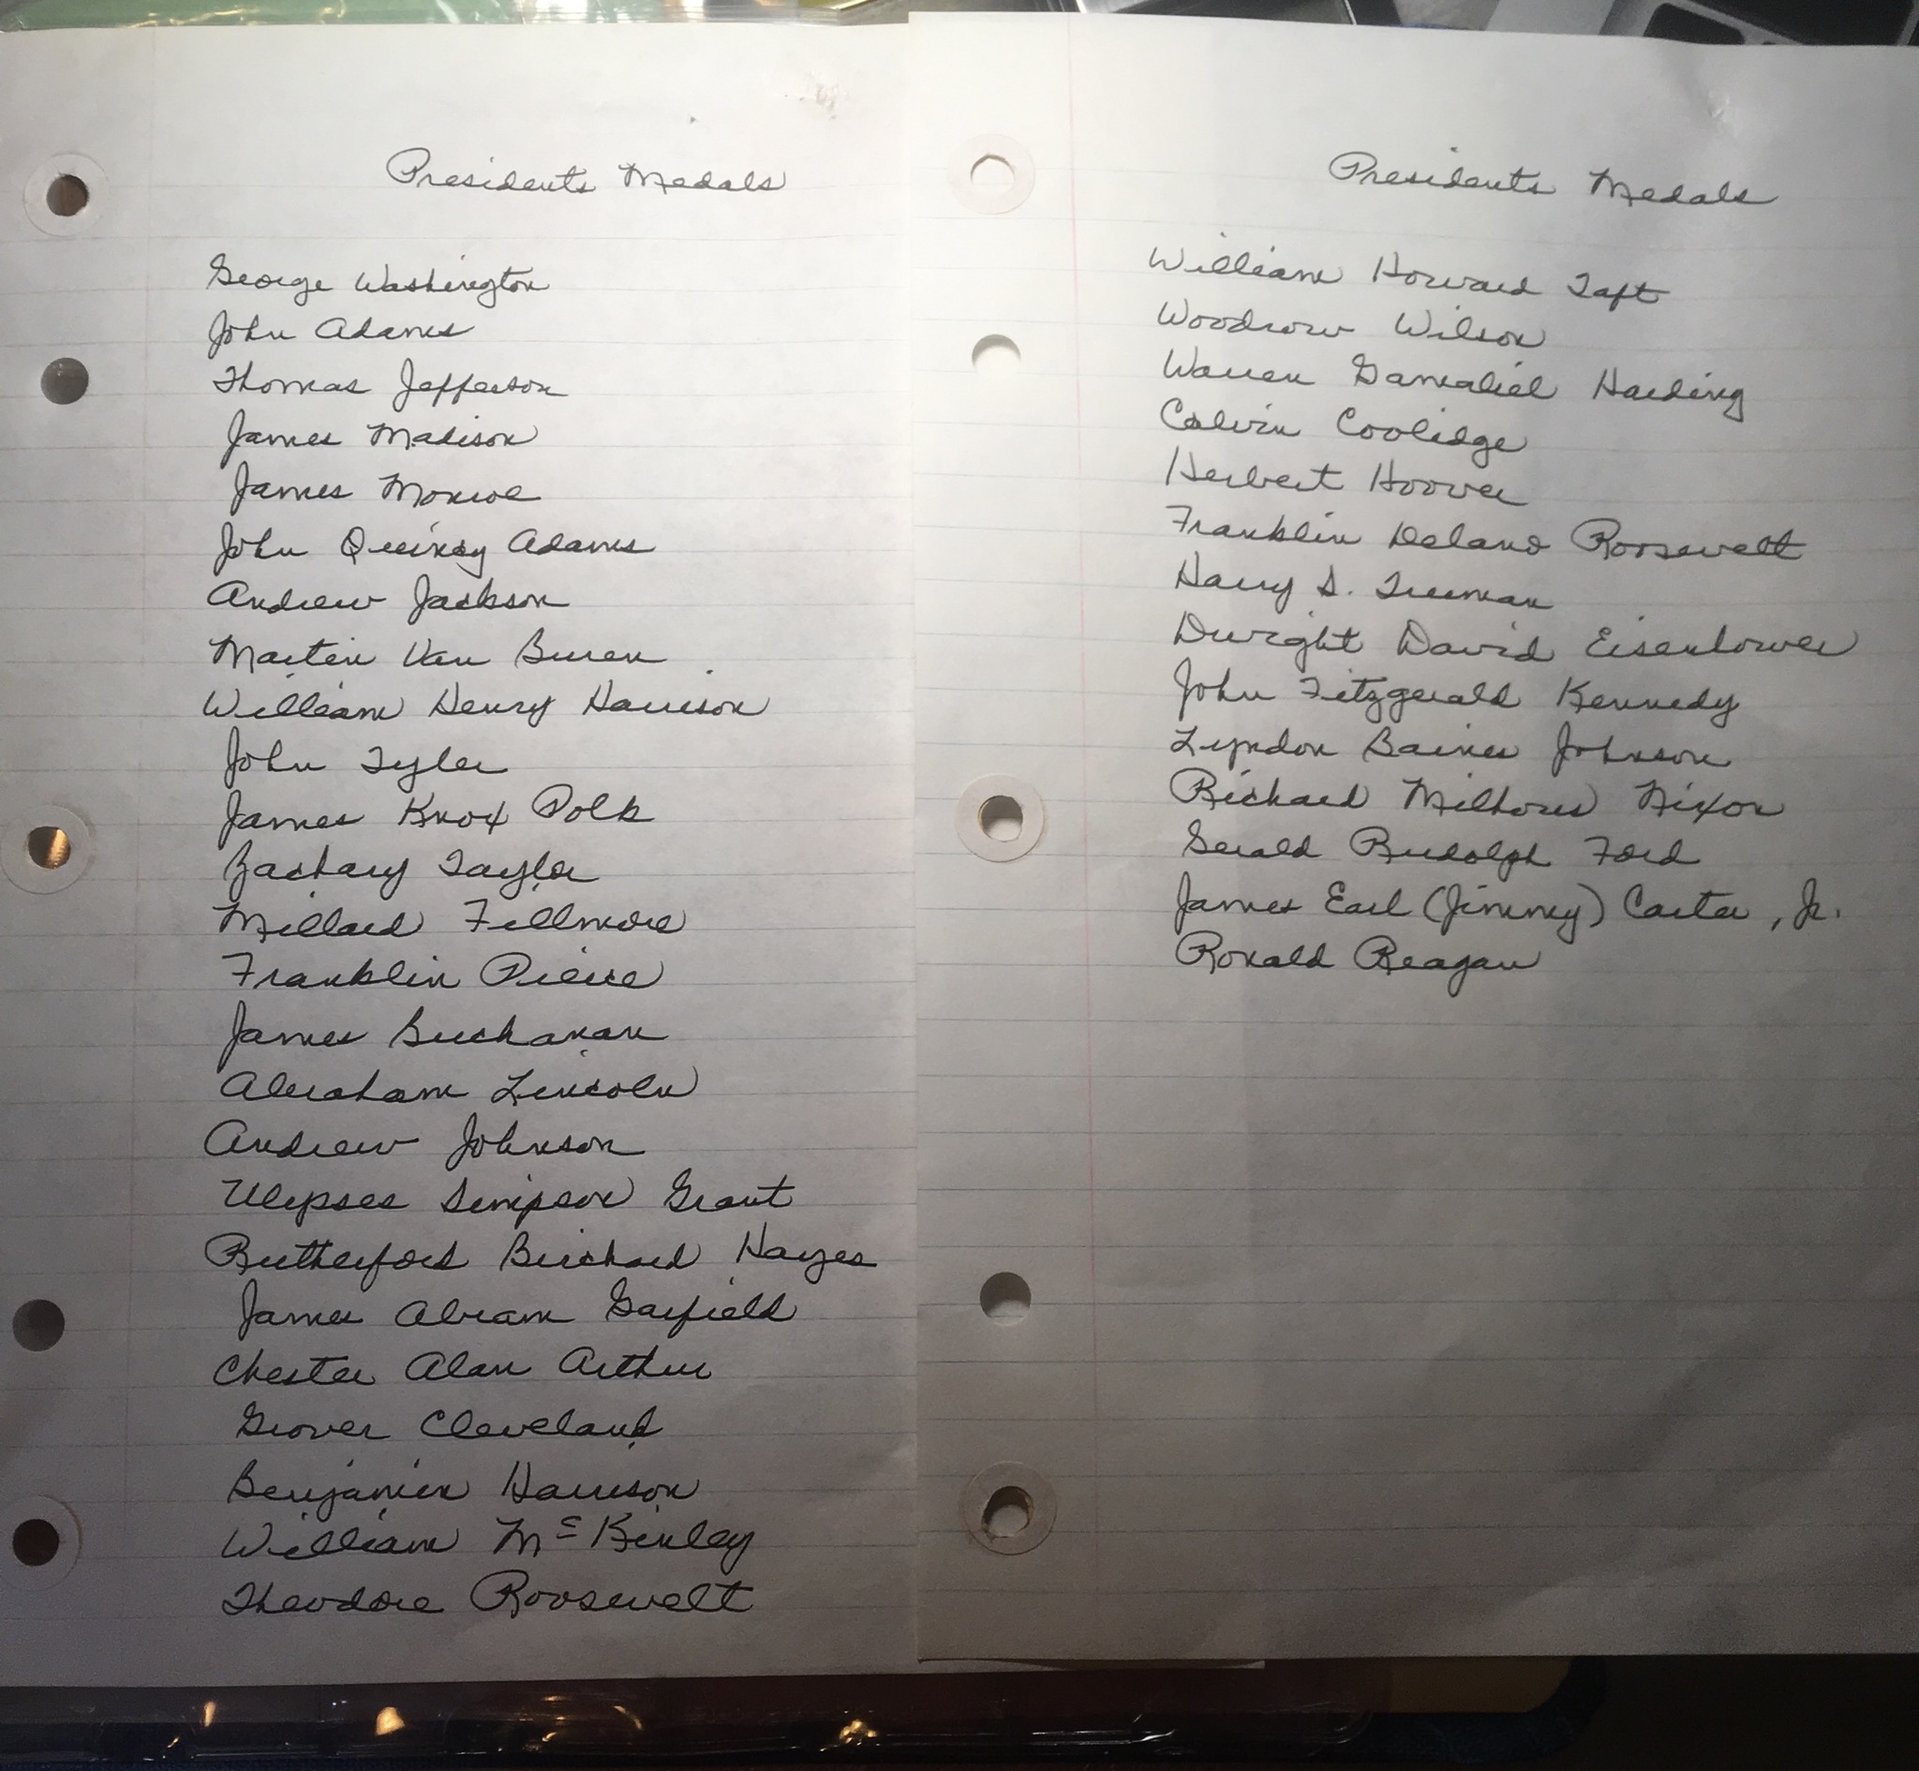 Presidents Medals
George Washington
John Adams
Thomas Jefferson
James Madison
James Monroe
John Quincy Adams
Andrew Jackson
Martin Van Buren
William Henry Harrison
John Tyler
James Knox Polk
Zachary Taylor
Millard Fillmore
Franklin Pierce
James Buchanan
Abraham Lincoln
Andrew Johnson
Ulysses Simpson Grant
Rutherford Birchard Hayes
James Abram Garfield
Chester Alan Arthur
Grover Cleveland
Benjamin Harrison
William McKinley
Theodore Roosevelt
Presidents Medals
William Howard Taft
Woodrow Wilson
Warren Gamaliel Harding
Calvin Coolidge
Herbert Hoover
Franklin Delano Roosevelt
Harry S. Truman
Dwight David Eisenhower
John Fitzgerald Kennedy
Lyndon Baines Johnson
Richard Milhous Nixon
Gerald Rudolph Ford
James Earl (Jimmy) Carter, Jr.
Ronald Reagan